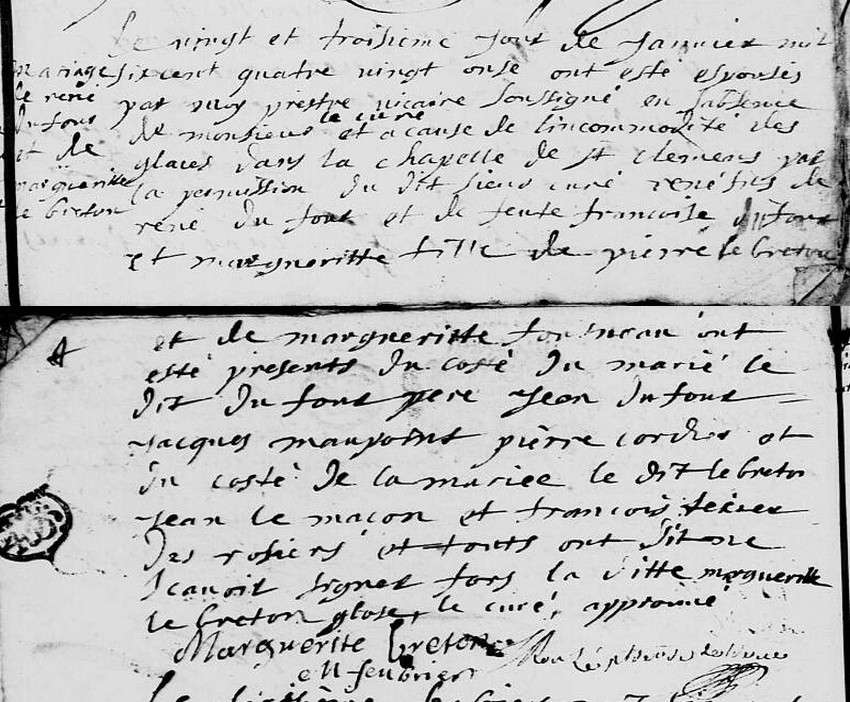 le vingt et troisieme jour de janvier mil
mariage sixcent quatre vingt onse ont esté espousés
de rené par moy prestre vicaire soussigné en labsence
du four de monsieur le curé et acause de lincommodité des
et de glaces dans la chapelle de st clemens par
margueritte la permission du dit sieur curé rené fils de
le breton rené du four et de feute francoise dufour
et margueritte fille de pierre le breton
et de margueritte ont
esté presents du costé du marié le
dit du four pere jean dufour
jacques maupoint pierre cordier et
du costé de la mariee le dit lebreton
jean le macon et francois texier
des rosiers et touts ont dit ne
scavoir signer fors la ditte margueritte
le breton glose, le curé, approuvé
Marguerite breton